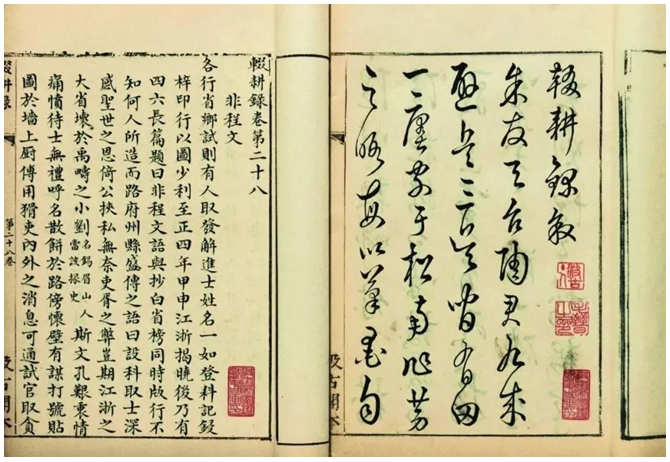 輟耕錄敘
余友天台陶君九成
避兵三吳間有田
一廛家于松南作勞
之暇每以筆墨自
輟耕錄卷第二十八
非程文
各行省鄉試則有人取發解進士姓名一如登科記鋟
梓印行以圖少利至正四年甲申江浙揭曉後乃有
四六長篇題曰非程文語與抄白省榜同時版行不
知何人所造而路府州縣盛傳之語曰設科取士深
感聖世之恩倚公挾私無奈吏胥之弊豈期江浙之
大省壞於禹疇之小劉名錫眉山人當該掾史斯文孔艱衷情
痛憤待士無禮呼名散餅於路傍懷壁有謀打號貼
圖於墻上厨傳用猾吏內外之消息可通試官取貪
輟耕錄 第二十八卷 汲古閣本